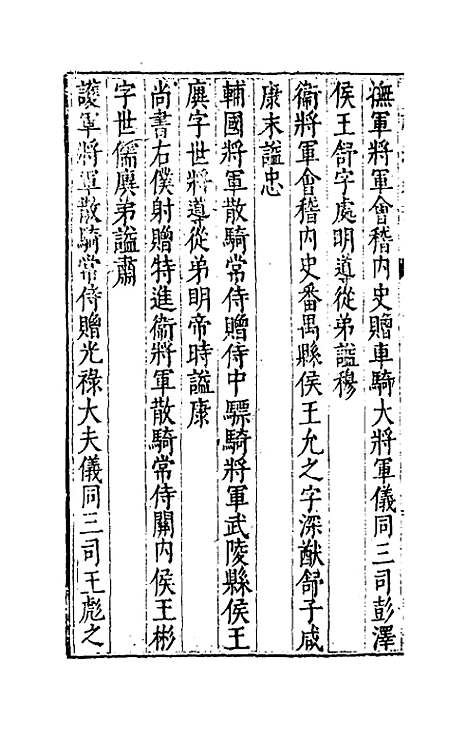 撫軍將軍會稽内史贈車騎大將軍儀同三司彭澤
侯王舒字處明導從弟諡穆
衞將軍會稽内史番禺縣侯王允之字深猷舒子咸
康末諡忠
輔國將軍散騎常侍贈侍中驃騎將軍武陵縣侯王
廙字世將導從弟明帝時諡康
尚書右僕射贈特進衞將軍散騎常侍關内侯王彬
字世儒廙弟諡肅
護軍將軍散騎常侍贈光祿大夫儀同三司王彪之